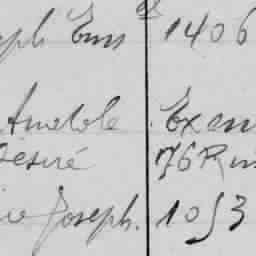 eph Em 1406
Anatole Exem
Désiré 76 R
Joseph. 1053